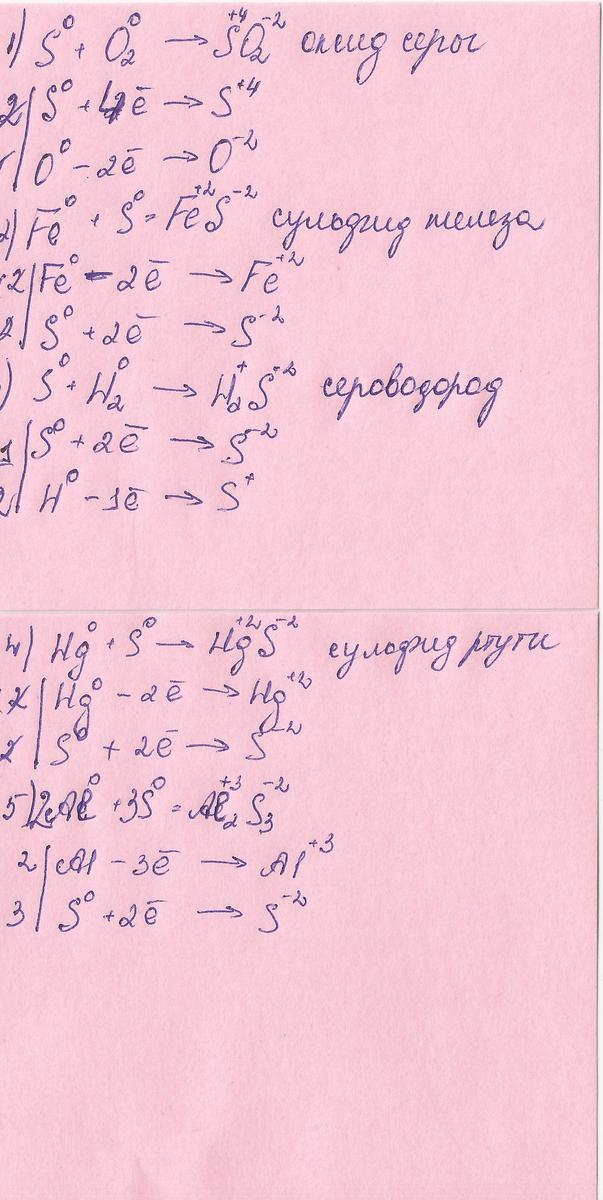 1) S⁰ + O₂⁰ → S⁺⁴O₂⁻² оксид серы
2| S⁰ + 4ē → S⁺⁴
1| O⁰ - 2ē → O⁻²
2) Fe⁰ + S⁰ = Fe⁺²S⁻² сульфид железа
2| Fe⁰ - 2ē → Fe⁺²
2| S⁰ + 2ē → S⁻²
) S⁰ + H₂⁰ → H₂⁺S⁻² сероводород
1| S⁰ + 2ē → S⁻²
2| H⁰ - 1ē → S⁺
4) Hg⁰ + S⁰ → Hg⁺²S⁻² сульфид ртути
2| Hg⁰ - 2ē → Hg⁺²
2| S⁰ + 2ē → S⁻²
5) 2Al⁰ + 3S⁰ = Al₂⁺³S₃⁻²
2| Al - 3ē → Al⁺³
3| S⁰ + 2ē → S⁻²